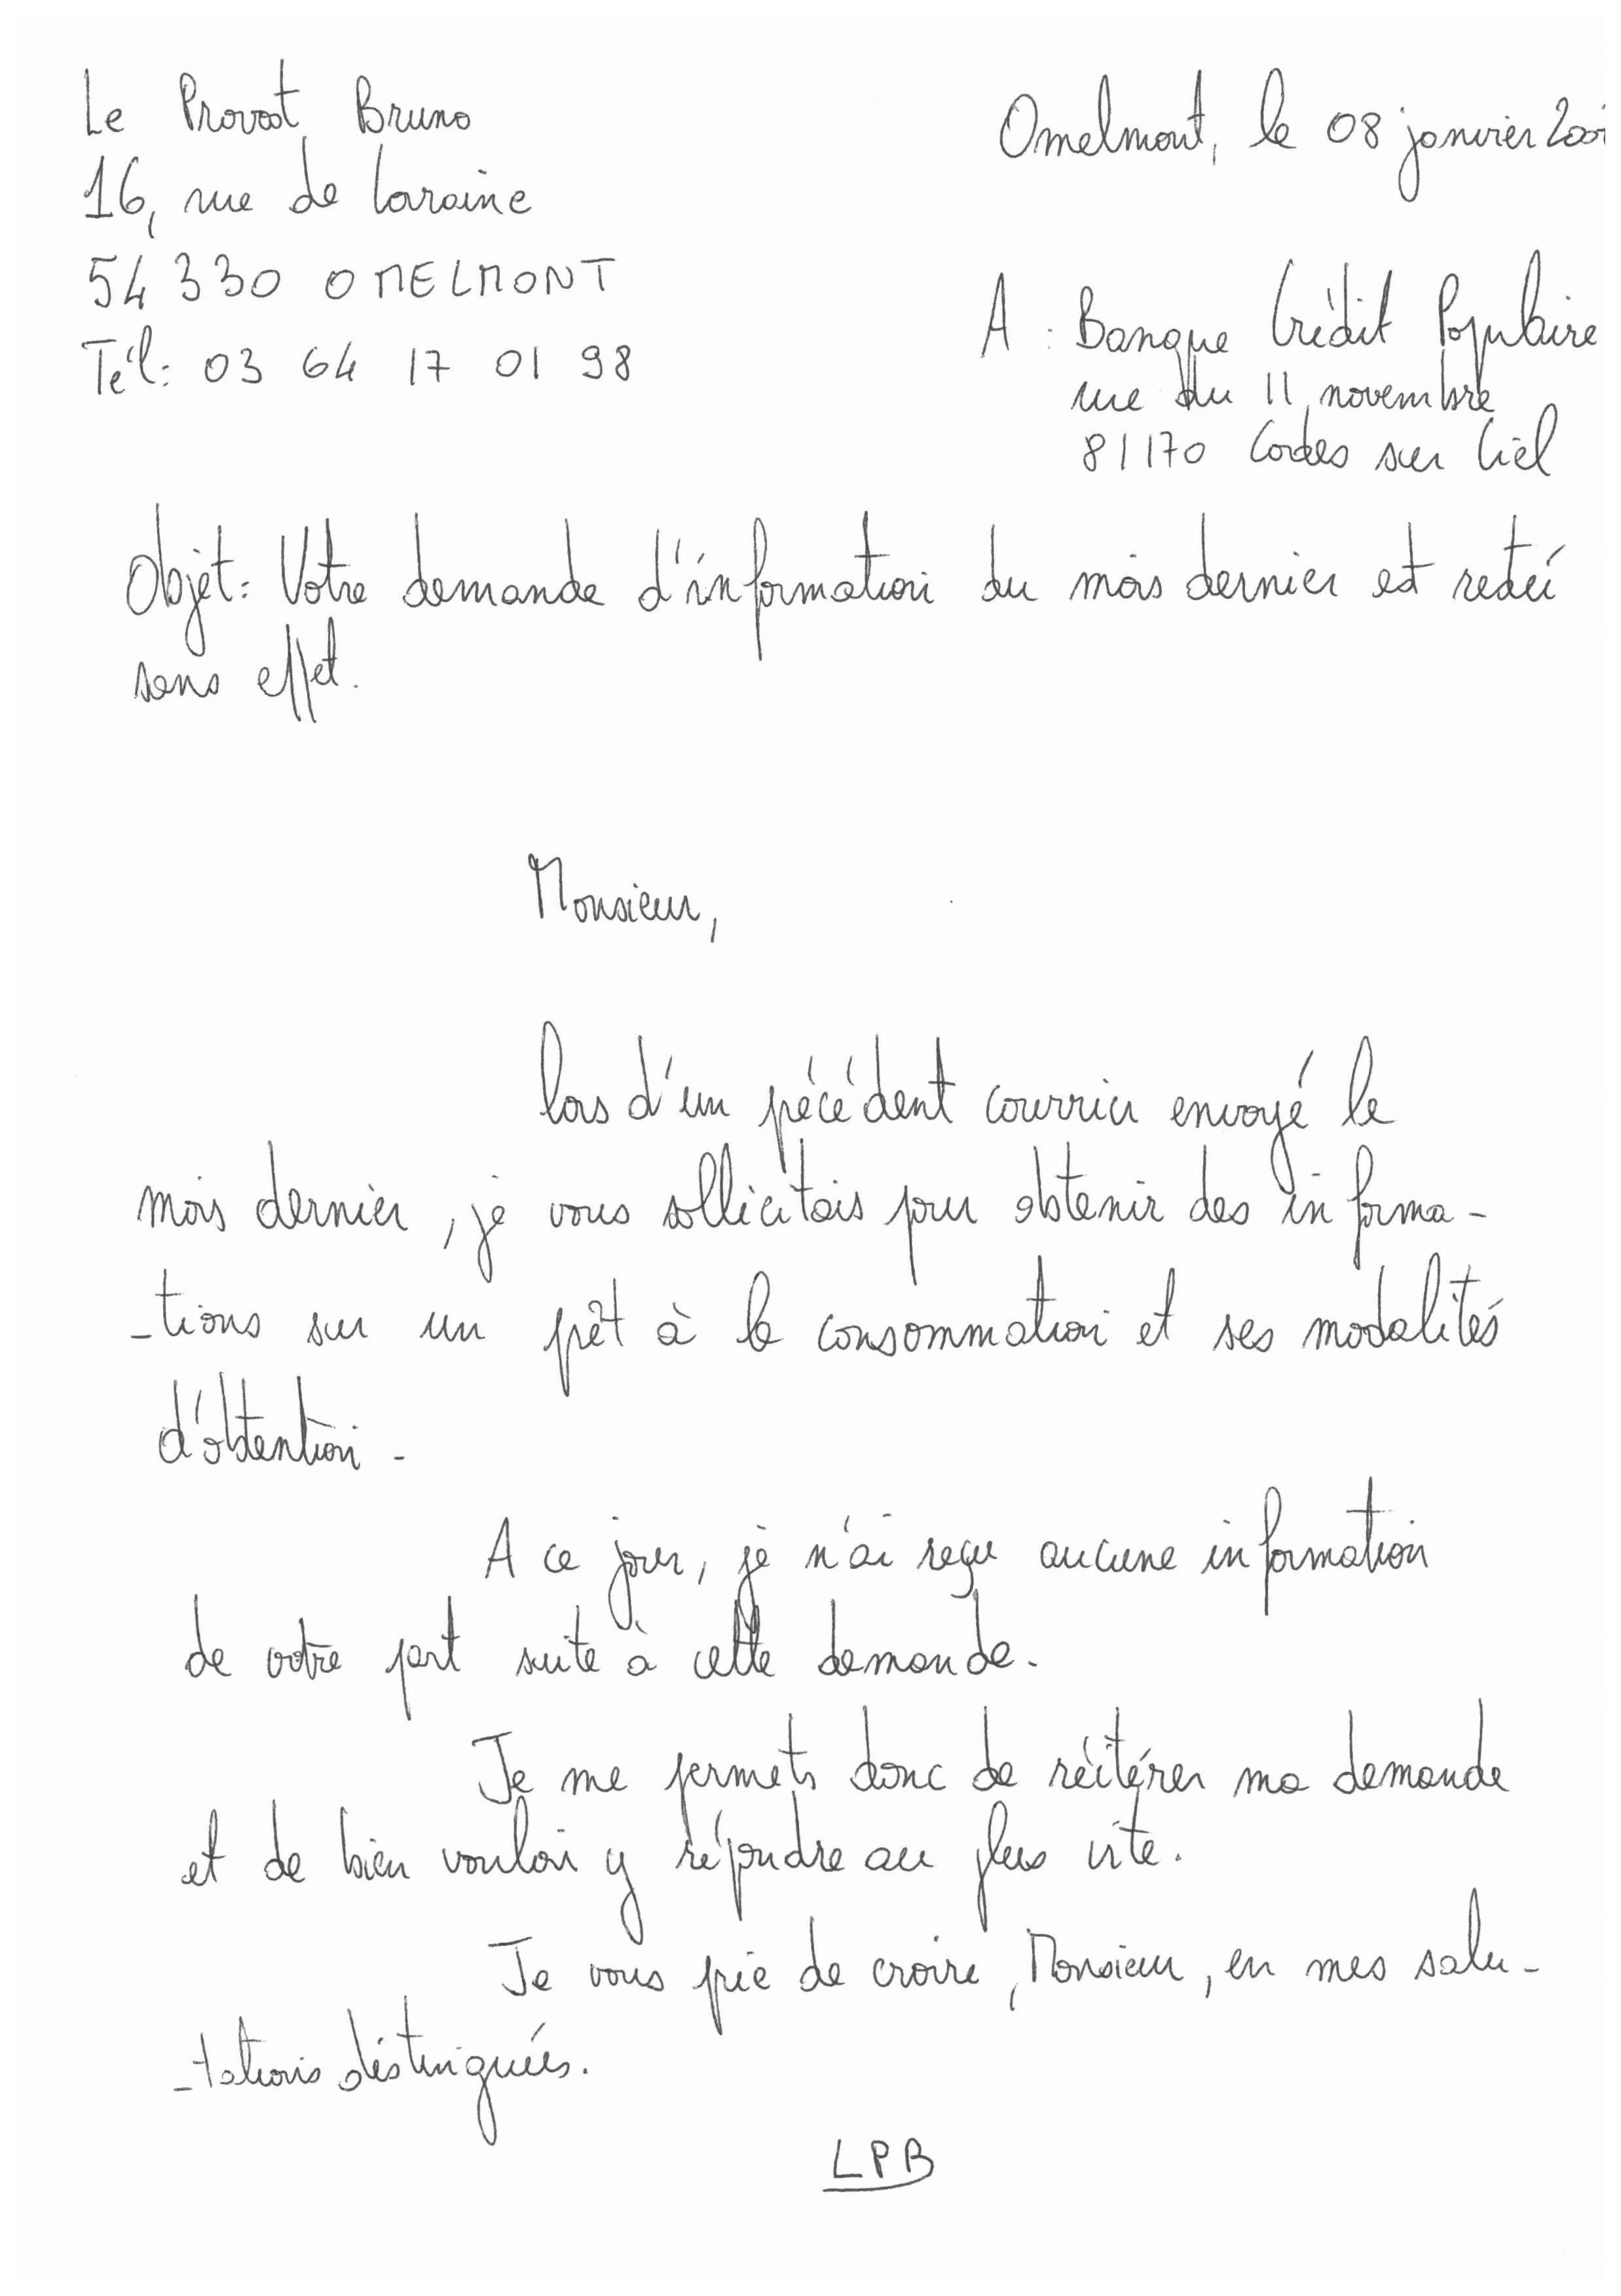 Le Provost Bruno
16, rue de Loraine
54 330 OMELMONT
Tél: 03 64 17 01 98
Omelmont, le 08 janvier
A : Banque Crédit Populaire
rue du 11 novembre
81170 Cordes sur Ciel
Objet: Votre demande d'information du mois dernier est
sans effet.
Monsieur,
lors d'un pécédent courrier envoyé le
mois dernier, je vous sollicitais pour obtenir des informa-
-tions sur un prêt à la consommation et ses modalités
d'obtention.
A ce jour, je n'ai reçu aucune information
de votre part suite à cette demande.
Je me permets donc de réitérer ma demande
et de bien vouloir y répondre au plus vite.
Je vous prie de croire, Monsieur, en mes salu-
-tations distinguées.
LPB